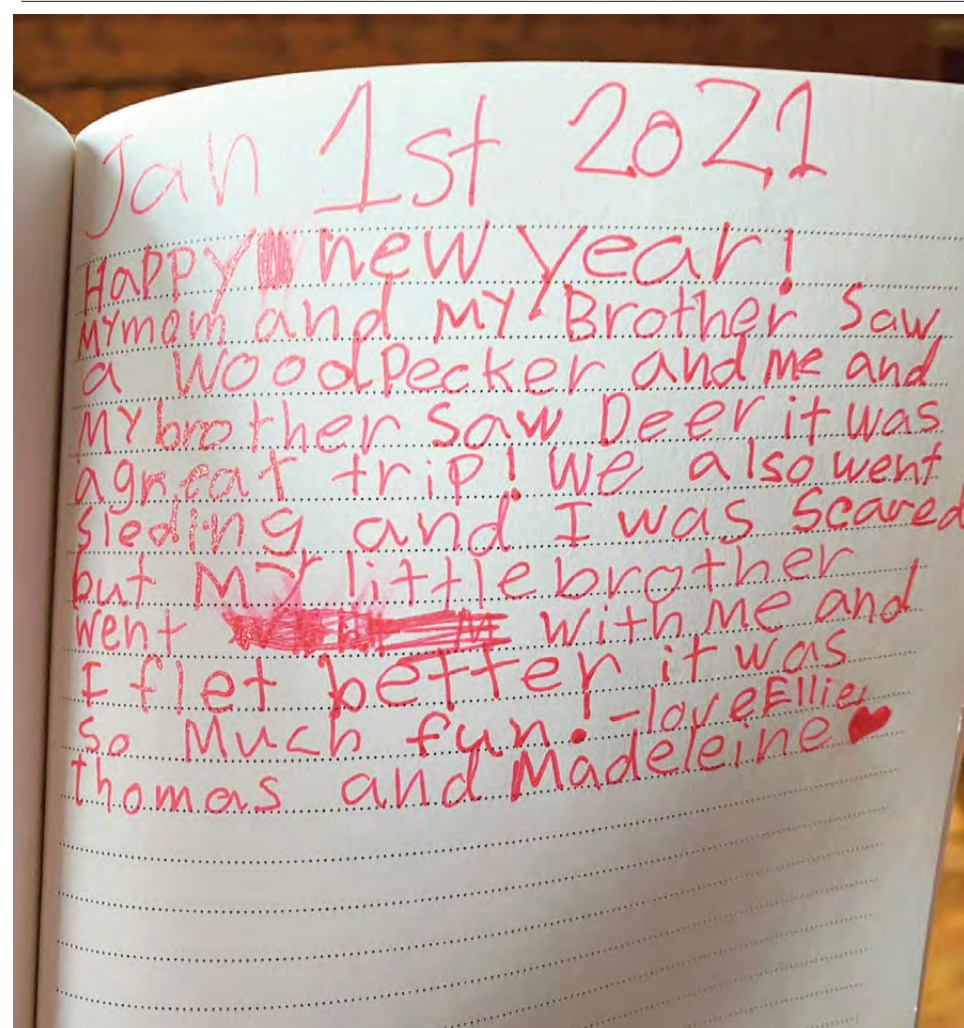 Jan 1st 2021
Happy new year!
MY mom and MY Brother Saw
a WoodPecker and me and
MY brother Saw Deer it was
a great trip! We also went
Sleding and I was Scared
but MY little brother
went with me and
I flet better it was
so Much fun! -love Ellie,
thomas and Madeleine ♥